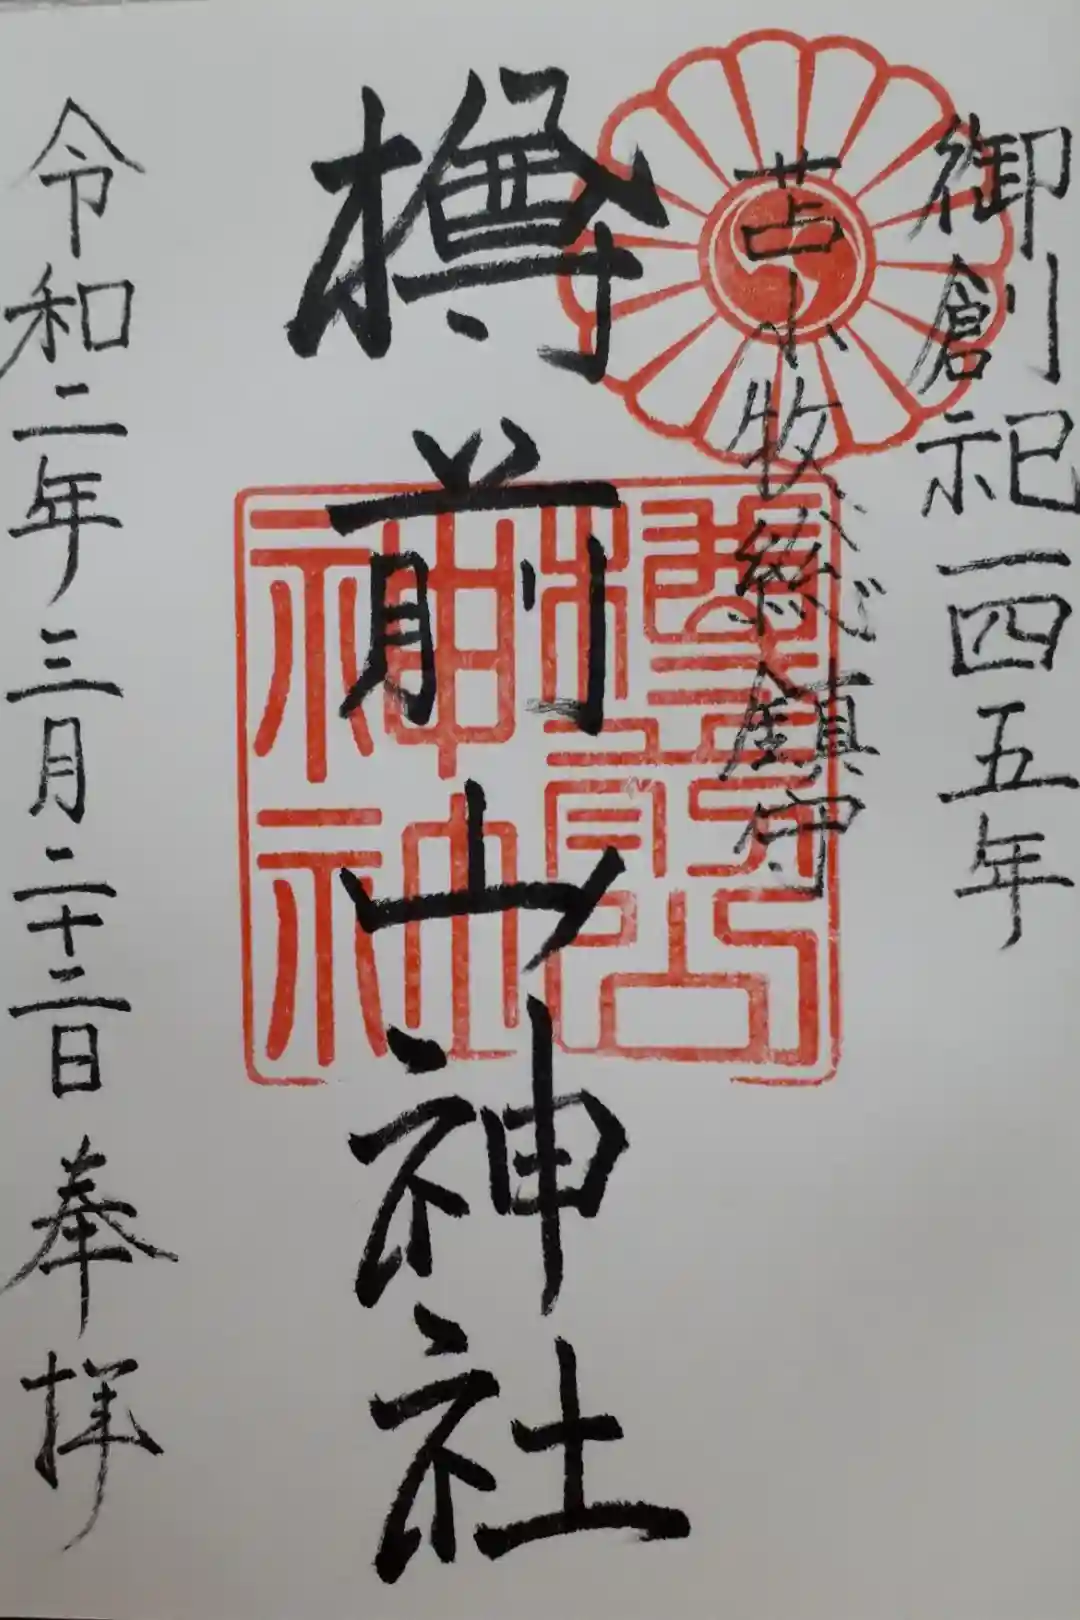 御創祀一四五年
苫小牧総鎮守
樽前山神社
令和二年三月二十二日 奉拝